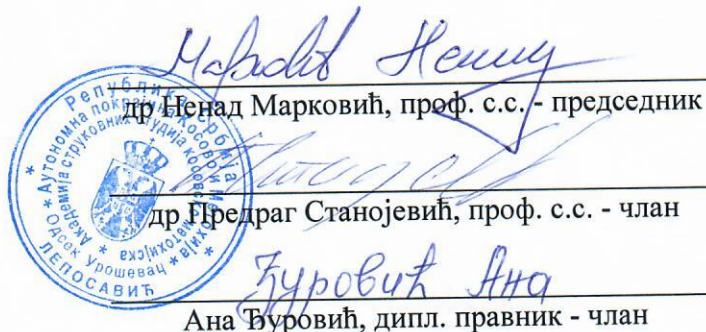 др Ненад Марковић, проф. с.с. - председник
др Предраг Станојевић, проф. с.с. - члан
Ђуровић Ана
Ана Ђуровић, дипл. правник - члан
Република Србија
Аутономна покрајина Косово и Метохија
Академија струковних студија косовско метохијска
Одсек Урошевац
ЛЕПОСАВИЋ